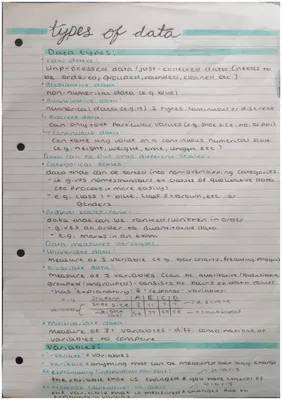 types of data
Data types:
• Raw data:
unprocessed data / just collected data (needs to
be ordered, grouped, rounded, cleaned etc.)
• Qualitative data:
non-numerical data (e.g. blue)
• Quantitative data:
numerical data (e.g. 15) 2 types continuous or discrete
• Discrete data:
can only take particular values (e.g. shoe size, no. of
• Continuous data:
can take any value on a continuous numerical scale
(e.g. height, weight, time, length etc.)
Data can be put into different scales:
• Categorical scales:
data that can be sorted into non-overlapping categories
- gives names/numbers to classes of qualitative data
(to process it more easily)
- e.g. class 1 = blue, class 2 = etc. or
Genders
• Ordinal scales/rank:
data that can be ranked/written in order
- gives an order to qualitative data
- e.g. marks in an exam
Data measures variables:
• Univariate data:
measure of 1 variable e.g. bar charts, frequency
• Bivariate data:
measure of 2 variables (can be qualitative/quantitative
grouped/ungrouped) - consists of pairs of data values
- has 'explanatory' & 'response' variables
e.g. A B C D
• Multivariate data:
measure of 3+ variables - diff.
variables to compare
Variables:
• variable = variables
variable = anything that can be measured/can vary/change
• Explanatory (independent) variable:
the variable that is changed & you have control of
• Response (dependent) variable:
the variable that is measured & changes due to